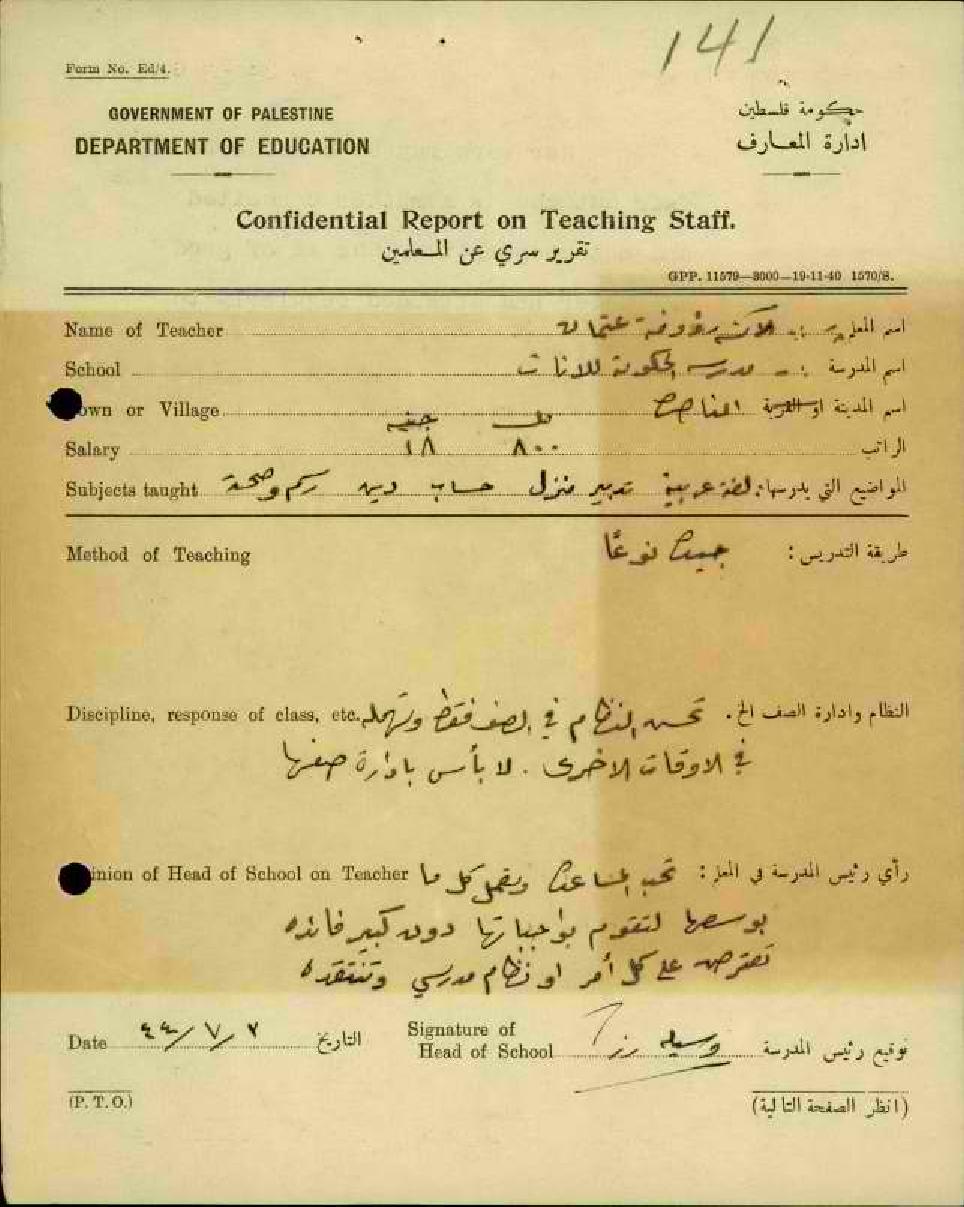 141
Form No. Ed/4.
GOVERNMENT OF PALESTINE
حكومة فلسطين
DEPARTMENT OF EDUCATION
ادارة المعارف
Confidential Report on Teaching Staff.
تقرير سري عن المعلمين
GPP. 11579—3000—19-11-40 1570/S.
Name of Teacher الآنسة رؤوفة عثمان اسم المعلم
School مدرسة الحكومة للاناث اسم المدرسة
Town or Village الناصرة اسم المدينة او القرية
جنيه مل
Salary ١٨ ٨٠٠ الراتب
Subjects taught لغة عربية تدبير منزل حساب دين رسم وصحة المواضيع التي يدرسها
Method of Teaching جيدة نوعًا طريقة التدريس :
Discipline, response of class, etc. تحسن النظام في الصف فقط وتهمله النظام وادارة الصف الخ .
في الاوقات الاخرى . لا بأس بادارة صفها
inion of Head of School on Teacher تحب المساعدة وتفعل كل ما رأي رئيس المدرسة في المعلم :
بوسعها لتقوم بواجباتها دون كبير فائده
تعترض على كل أمر او نظام مدرسي وتنتقده
Date ٤٤/٧/٢ التاريخ
Signature of
Head of School وسيله توقيع رئيس المدرسة
(P. T. O.)
(انظر الصفحة التالية)